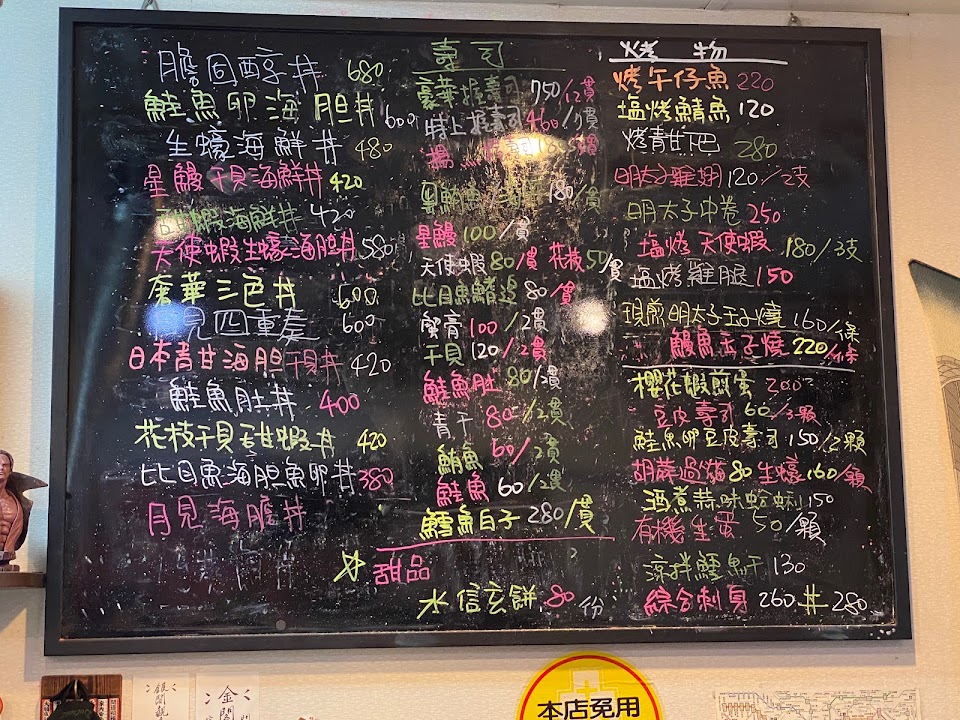 膽固醇丼 680
鮭魚卵海胆丼 600
生蠔海鮮丼 480
星鰻干貝海鮮丼 420
甜蝦海鮮丼 420
天使蝦生蠔海胆丼 580
奢華三色丼 600
月見四重奏 600
日本青甘海胆干貝丼 420
鮭魚肚丼 400
花枝干貝甜蝦丼 420
比目魚海胆魚卵丼 380
月見海膽丼
壽司
豪華握壽司 750/12貫
特上握壽司 460/7貫
180/貫
星鰻 100/貫
天使蝦 80/貫 花枝 50/貫
比目魚鰭邊 80/貫
蟹膏 100/2貫
干貝 120/2貫
鮭魚肚 80/2貫
青干 80/2貫
鮪魚 60/2貫
鮭魚 60/2貫
鱈魚白子 280/貫
甜品
水信玄餅 80份
烤物
烤午仔魚 220
塩烤鯖魚 120
烤青甘下巴 280
明太子雞翅 120/2支
明太子中卷 250
塩烤天使蝦 180/3支
塩烤雞腿 150
現煎明太子玉子燒 160/條
鰻魚玉子燒 220/條
櫻花蝦煎蛋 200
豆皮壽司 60/3顆
鮭魚卵豆皮壽司 150/2顆
胡麻過貓 80 生蠔 160/顆
酒煮蒜味蛤蜊 150
有機生蛋 50/顆
涼拌鱈魚干 130
綜合刺身 260 丼 280
金閣
本店免用